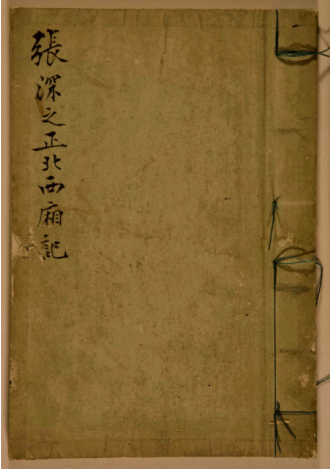 張深之正北西廂記